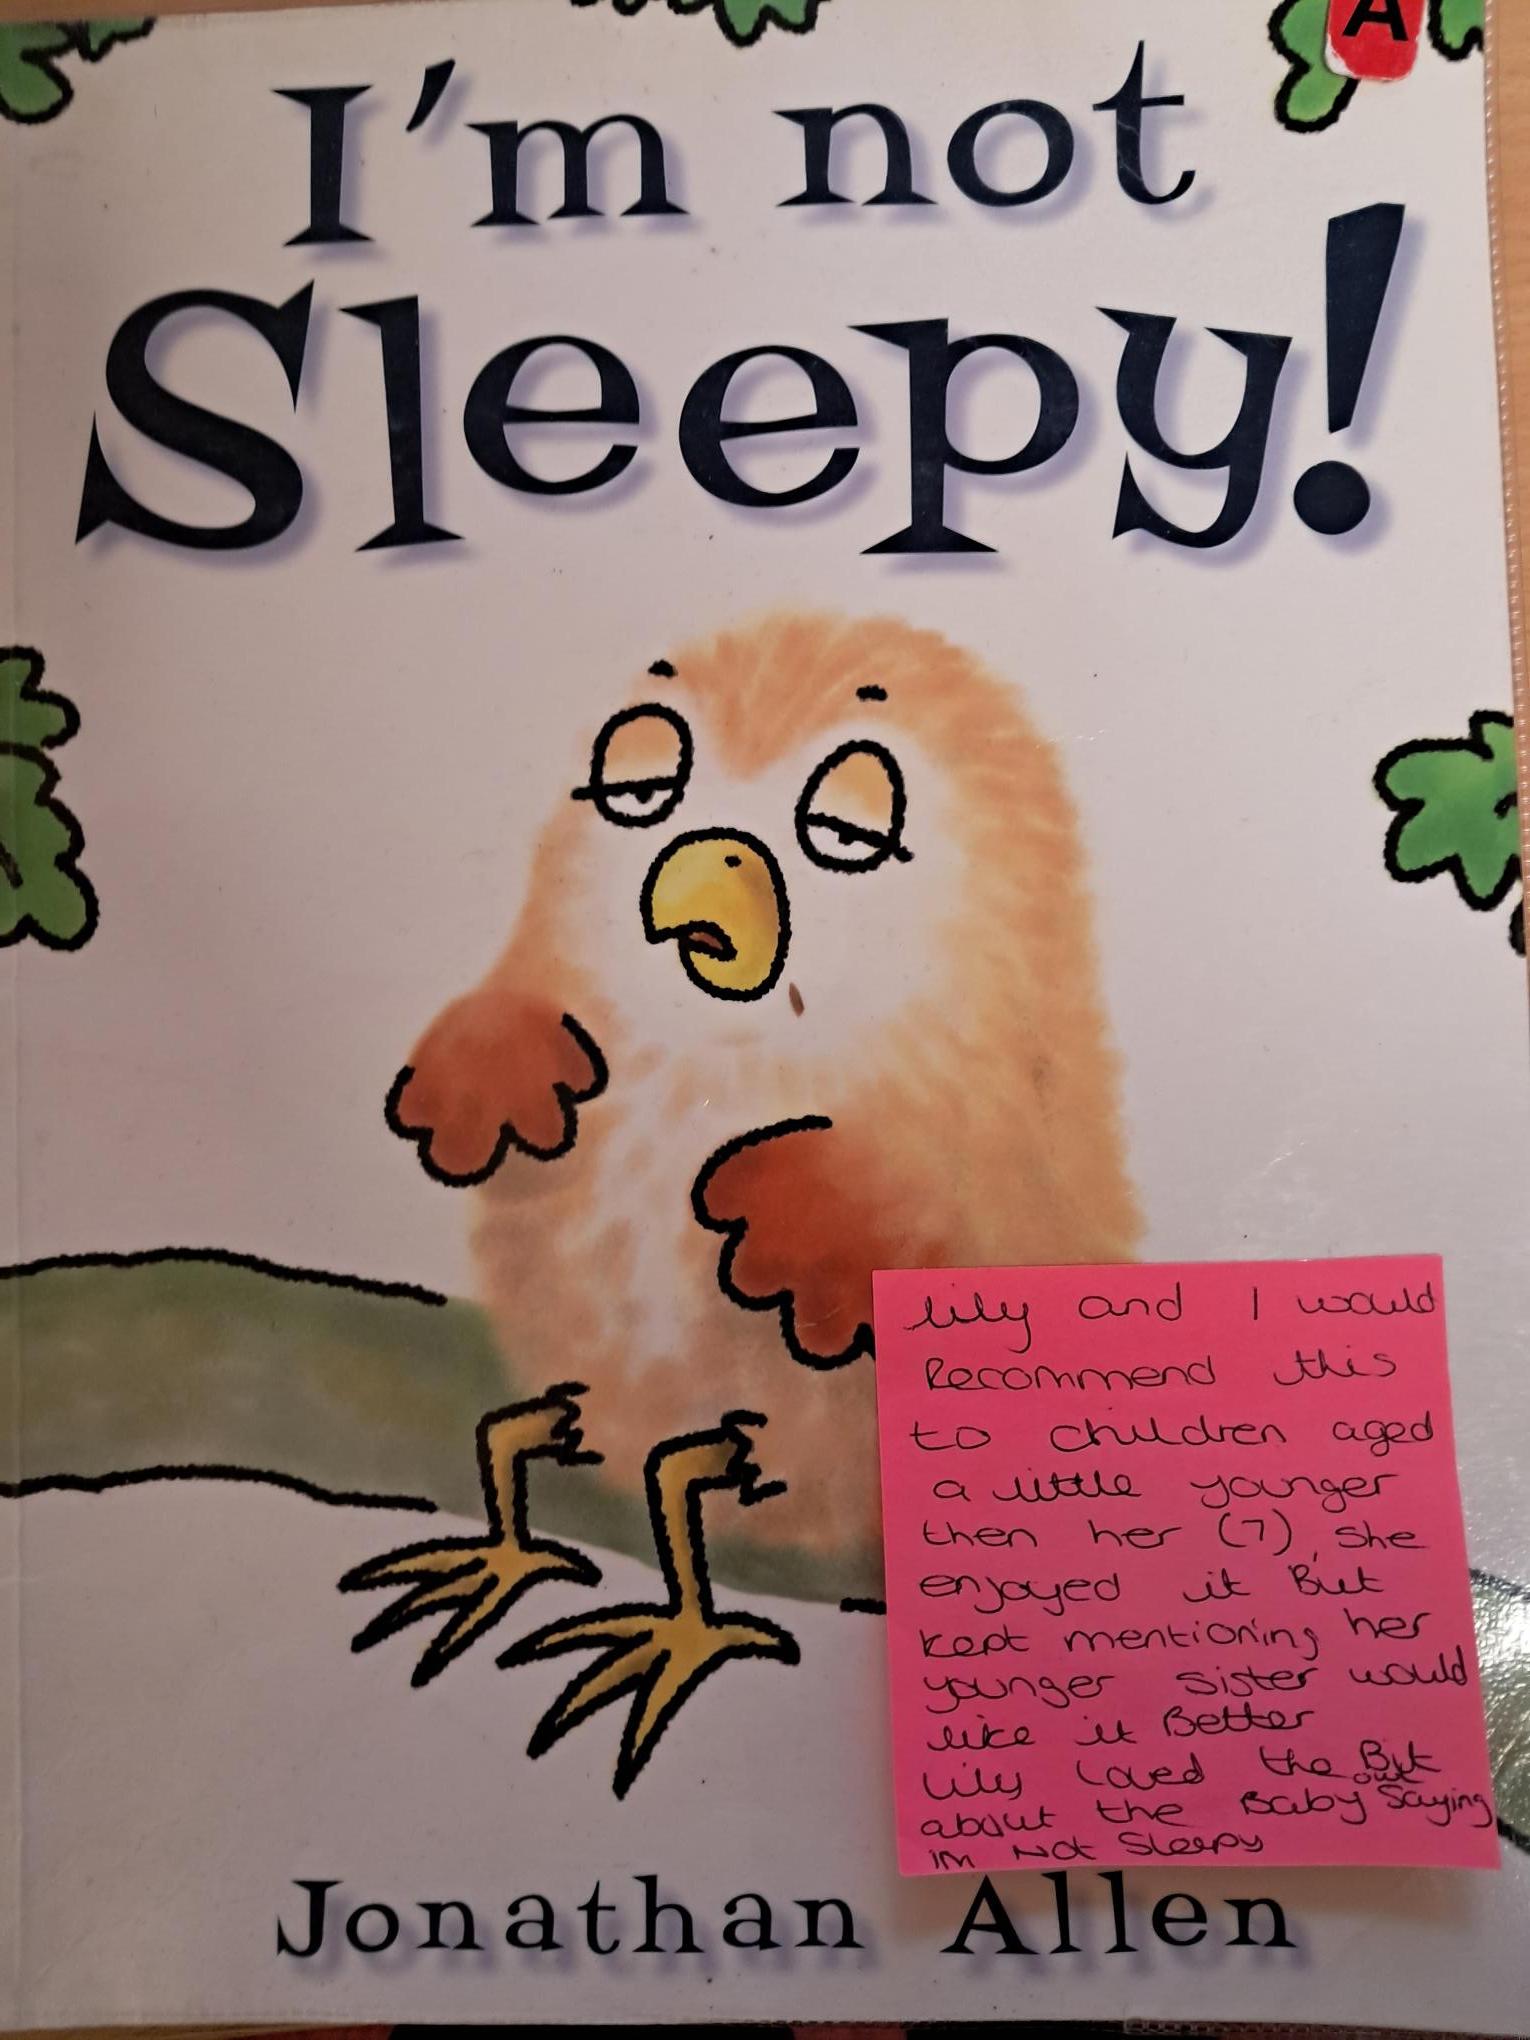 A
I'm not
Sleepy!
Lily and I would
Recommend this
to children aged
a little younger
then her (7), she
enjoyed it But
kept mentioning her
younger sister would
like it Better
Lily Loved the Bit
about the Baby owl Saying
im Not Sleepy
Jonathan Allen